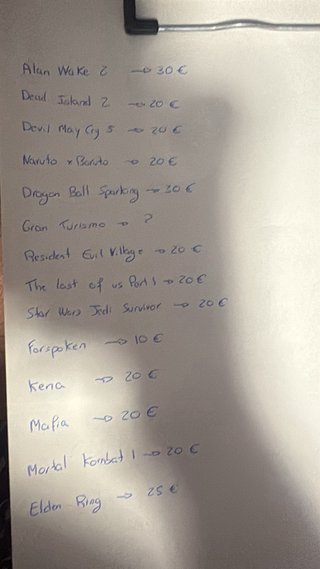 Alan Wake 2 → 30 €
Dead Island 2 → 20 €
Devil May Cry 5 → 20 €
Naruto x Boruto → 20 €
Dragon Ball Sparking → 30 €
Gran Turismo → ?
Resident Evil Village → 20 €
The last of us Part 1 → 20 €
Star Wars Jedi Survivor → 20 €
Forspoken → 10 €
Kena → 20 €
Mafia → 20 €
Mortal Kombat 1 → 20 €
Elden Ring → 25 €